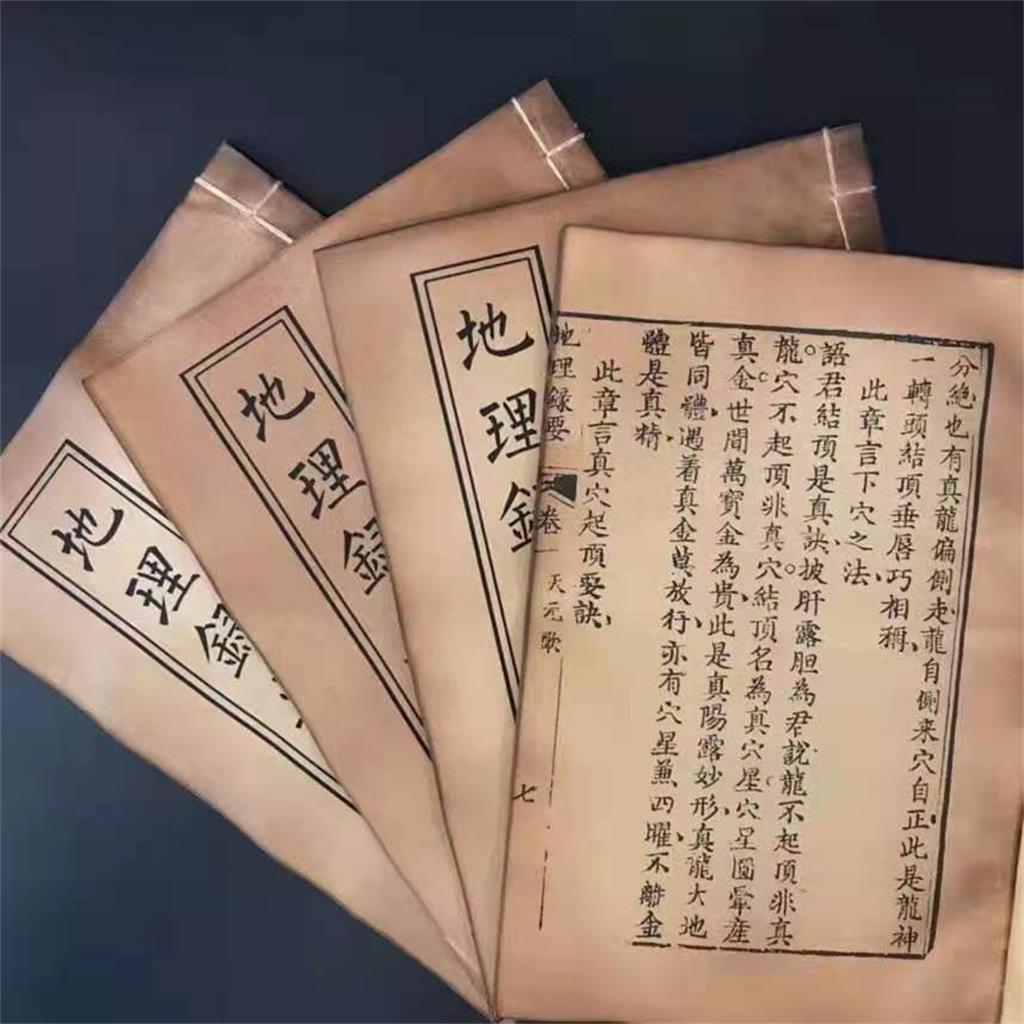 地理錄
地理錄
地理
分絶也有真龍偏側走、龍自側来穴自正、此是龍神
一轉頭結頂垂唇巧相稱、
此章言下穴之法、
語君結頂是真訣、披肝露胆為君說、龍不起頂非真
龍。穴不起頂非真穴。結頂名為真穴星。穴星圓暈産
真金。世間萬寶金為貴、此是真陽露妙形、真龍大地
皆同體、遇着真金莫放行、亦有穴星兼四曜、不離金
體是真精、
此章言真穴起頂要訣、
地理録要
卷一
天元歌
七